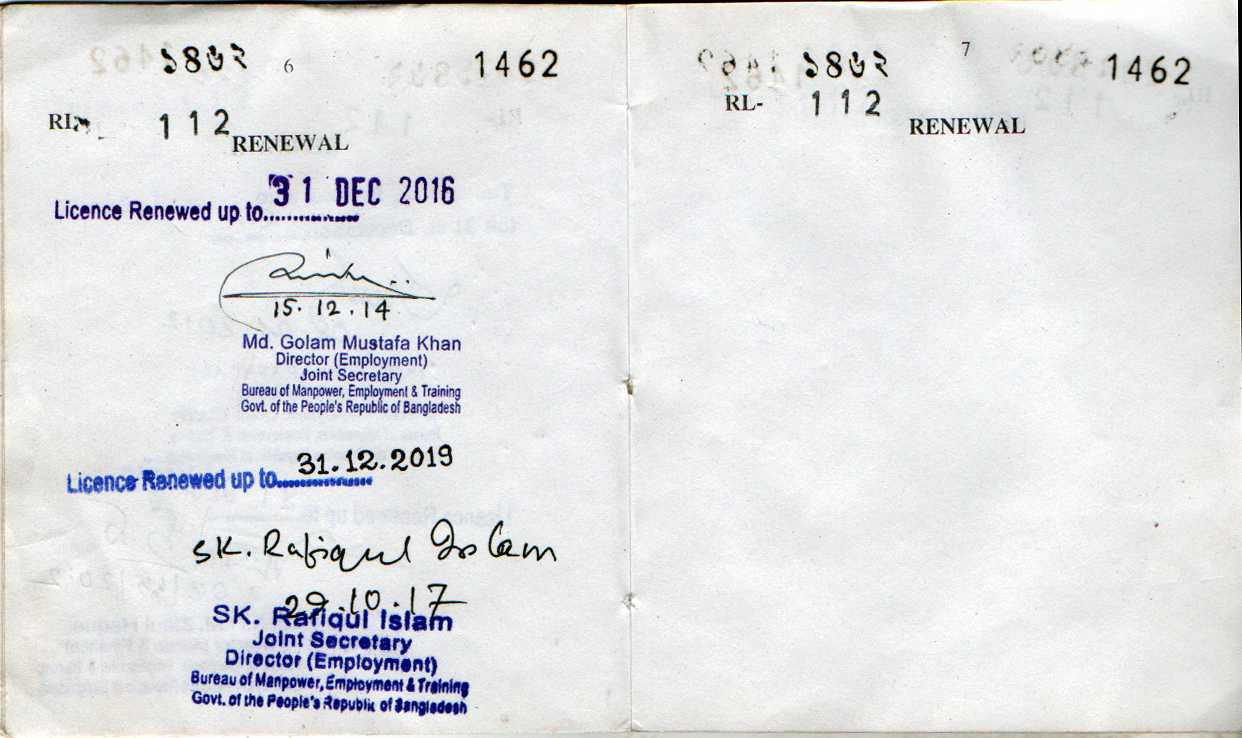 ১৪৬২ 6 1462
RL- 112
RENEWAL
31 DEC 2016
Licence Renewed up to..................
15.12.14
Md. Golam Mustafa Khan
Director (Employment)
Joint Secretary
Bureau of Manpower, Employment & Training
Govt. of the People's Republic of Bangladesh
31.12.2019
Licence Renewed up to..................
SK. Rafiqul Islam
29.10.17
SK. Rafiqul Islam
Joint Secretary
Director (Employment)
Bureau of Manpower, Employment & Training
Govt. of the People's Republic of Bangladesh
১৪৬২ 7 1462
RL- 112
RENEWAL